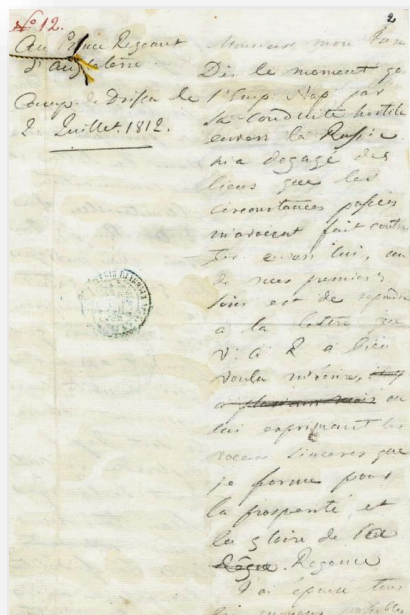 2
№ 12.
Au Prince Regeant
d'Angleterre.
Camp de Drissa le
2 Juillet. 1812.
Monsieur mon
Dès le moment que
l'Emp. Nap: par
sa conduite hostile
envers la Russie
m'a degagé des
liens que les
circonstances passées
m'avoient fait contrac
ter envers lui, un
de mes premiers
soins est de repondre
a la lettre que
V: A: R a bien
voulu m'écrire,
a plusieurs mois en
lui exprimant les
voeux sinceres que
je forme pour
la prosperité et
la gloire de
Règne. Regence
J'ai épuisé tous